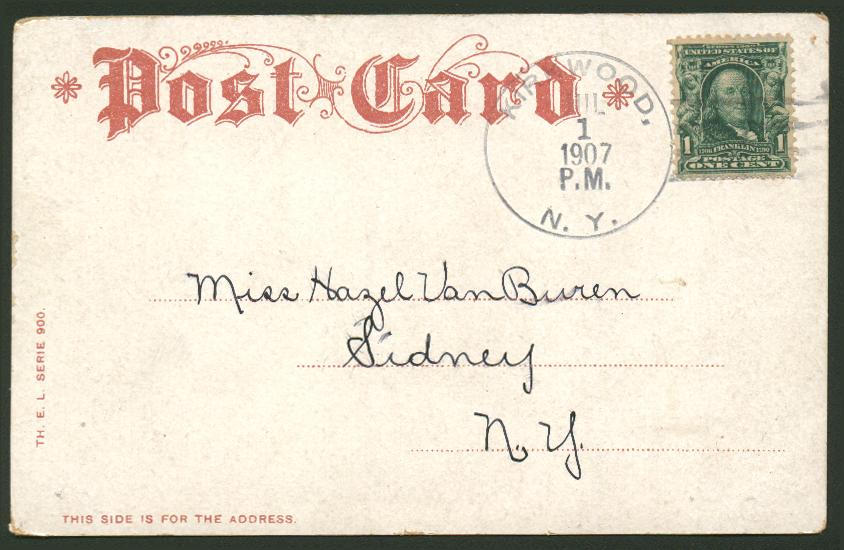 Post Card
KIRKWOOD,
JUL
1
1907
P.M.
N. Y.
SERIES 1902
UNITED STATES OF
AMERICA
1 FRANKLIN 1
POSTAGE
ONE CENT
Miss Hazel Van Buren
Sidney
N. Y.
TH. E. L. SERIE 900.
THIS SIDE IS FOR THE ADDRESS.